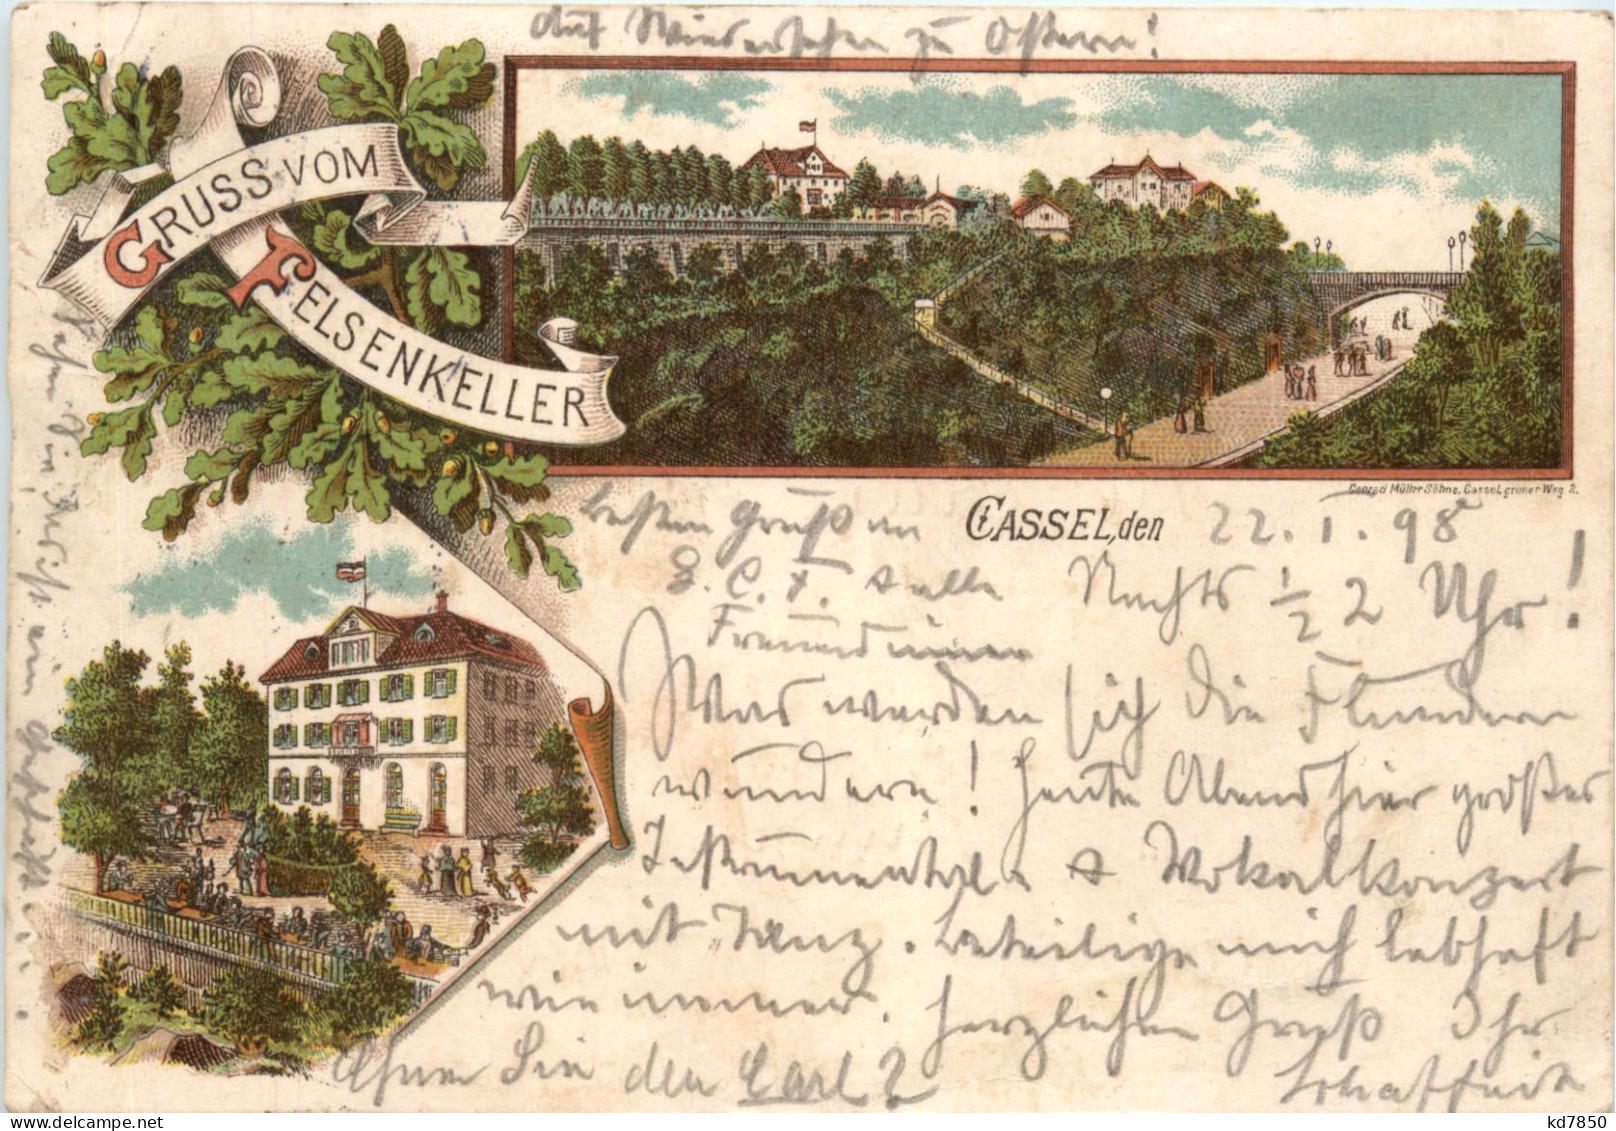 Auf Wiedersehen zu Ostern!
GRUSS VOM
FELSENKELLER
Conrad Müller Söhne, Cassel, grüner Weg 2.
CASSEL, den 22. I. 98
Nachts ½ 2 Uhr!
besten Gruß an
E. C. F. & alle
Freundinnen
Was werden sich die Flundern
wundern! Heute Abend hier großes
Instrumental & Vokalkonzert
mit Tanz. Beteilige mich lebhaft
wie immer. Herzlichen Gruß Ihr
Sehen Sie den Carl?
kd7850